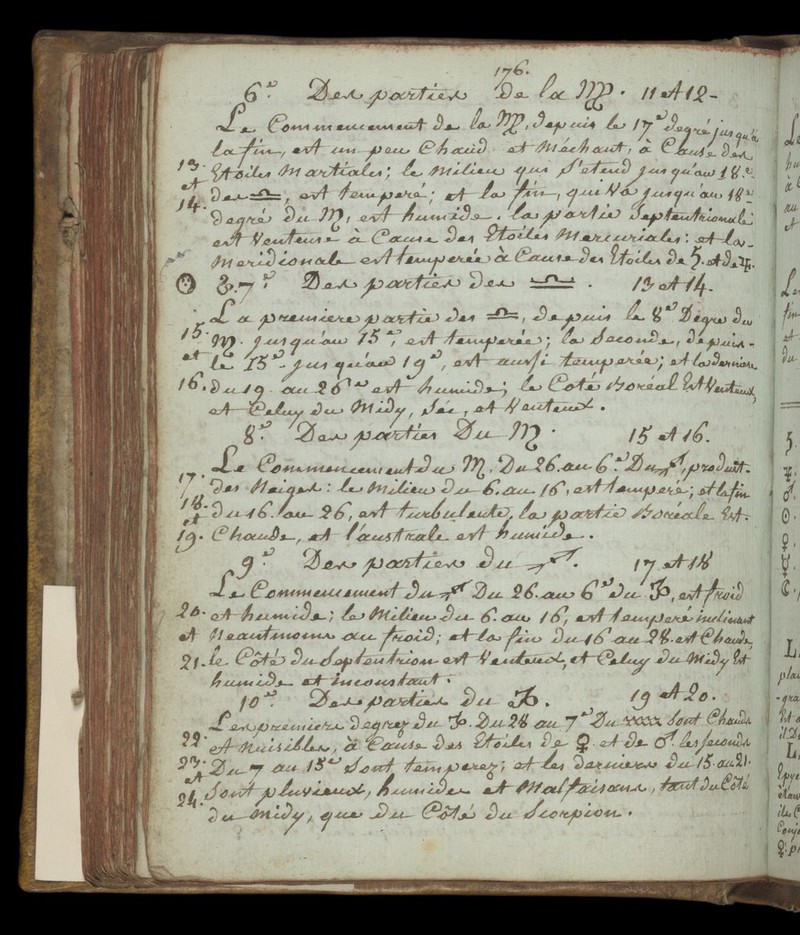 176.
6.e Des parties de la ♍. 11 et 12-
Le Commencement de la ♍, depuis le 17e degré jusqu'à
la fin, est un peu Chaud et méchant, à Cause des
13. Etoiles Martiales; le milieu qui s'etend jusqu'au 18.e
et des ♎, est temperé; et la fin, qui va jusqu'au 18e
14. degré du ♏, est humide. la partie Septentrionale
est Venteuse à Cause des Etoiles Mercuriales: et la-
meridionale est temperée à Cause des Etoiles de ♄. et de ♃.
☉ 7.e Des parties des ♎. 13 et 14.
La premiere partie des ♎, depuis le 8e Dégre du
15. ♏. jusqu'au 15e, est temperée; la Seconde, depuis-
et le 15e jusqu'au 19e, est aussi temperée; et la derniere
16. du 19 au 26e est humide; le Coté Boréal Est Venteux,
et Celuy du Midy, Séc, et Venteux.
8.e Des parties Du ♏. 15 et 16.
17. Le Commencement du ♏, Du 26. au 6.e Du ♐, produit-
des Neiges: le milieu du 6. au 16, est temperé; et la fin
18. du 16. au 26, est turbulente, la partie Boréale Est-
et
19. Chaude, et l'australe est humide.
9.e Des parties du ♐. 17 et 18
Le Commencement du ♐ Du 26. au 6e du ♑, est froid
20. et humide; le Milieu du 6. au 16, est temperé inclinant
et Neantmoins au froid; et la fin du 16 au 28. est Chaude,
21. le Côté du Septentrion est Venteux, et Celuy du Midy Est
humide et inconstant.
10.e Des parties du ♑. 19 et 20.
Les premiers degrez du ♑. Du 28 au 7e Du xxxx Sont Chauds
22. et Nuisibles, à Cause des Etoiles de ♀. et de ♂. les seconds
23. Du 7 au 15e Sont temperez; et les derniers du 15. au 21.
et
24. Sont pluvieux, humides et Malfaisans, tant du Côté
du midy, que du Côté du Scorpion.